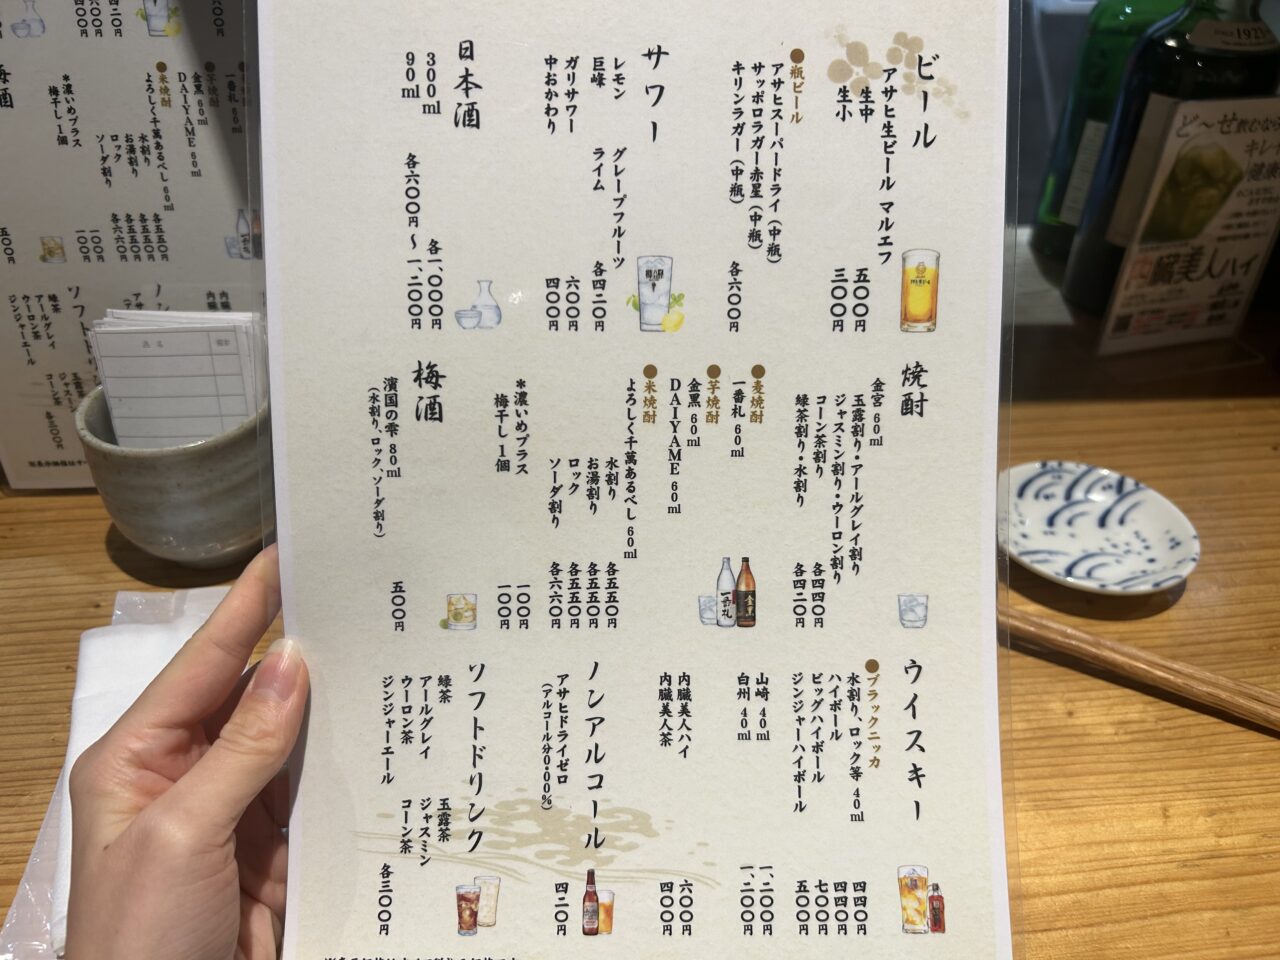 ビール
アサヒ生ビール マルエフ
生中 五〇〇円
生小 三〇〇円
●瓶ビール
アサヒスーパードライ(中瓶)
サッポロラガー赤星(中瓶)
キリンラガー(中瓶) 各六〇〇円
サワー
レモン グレープフルーツ
巨峰 ライム 各四二〇円
ガリサワー 六〇〇円
中おかわり 四〇〇円
日本酒
300ml 各一、〇〇〇円
90ml 各六〇〇円〜一、二〇〇円
焼酎
金宮 60ml
玉露割り・アールグレイ割り
ジャスミン割り・ウーロン割り
コーン茶割り 各四四〇円
緑茶割り・水割り 各四二〇円
●麦焼酎
一番札 60ml
●芋焼酎
金黒 60ml
DAIYAME 60ml
●米焼酎
よろしく千萬あるべし 60ml
水割り 各五五〇円
お湯割り 各五五〇円
ロック 各五五〇円
ソーダ割り 各六六〇円
*濃いめプラス 一〇〇円
梅干し1個 一〇〇円
梅酒
濱国の雫 80ml
(水割り、ロック、ソーダ割り) 五〇〇円
ウイスキー
●ブラックニッカ
水割り、ロック等 40ml 四四〇円
ハイボール 四四〇円
ビッグハイボール 七〇〇円
ジンジャーハイボール 五〇〇円
山崎 40ml 一、二〇〇円
白州 40ml 一、二〇〇円
内臓美人ハイ 六〇〇円
内臓美人茶 四〇〇円
ノンアルコール
アサヒドライゼロ
(アルコール分0.00%) 四二〇円
ソフトドリンク
緑茶 玉露茶
アールグレイ ジャスミン
ウーロン茶 コーン茶
ジンジャーエール 各三〇〇円
ど〜せ飲むなら
キレイ
健康
臓美人ハイ
1923